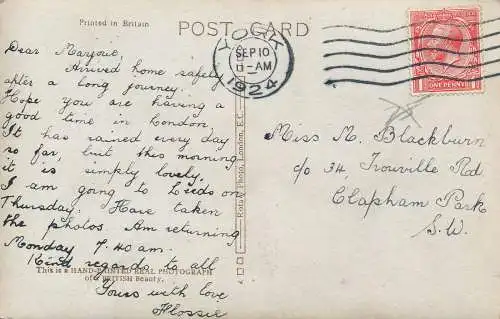 Printed in Britain
POST CARD
YORK
SEP 10
AM
1924
ONE PENNY
Dear Marjorie,
Arrived home safely
after a long journey.
Hope you are having a
good time in London.
It has rained every day
so far, but this morning
it is simply lovely.
I am going to Leeds on
Thursday. Have taken
the photos. Am returning
Monday 7.40 am.
Kind regards to all
Yours with love
Flossie
This is a HAND-PAINTED REAL PHOTOGRAPH
of a BRITISH Beauty.
Rotary Photo, London, E.C.
Miss M. Blackburn
c/o 34, Trouville Rd
Clapham Park
S.W.